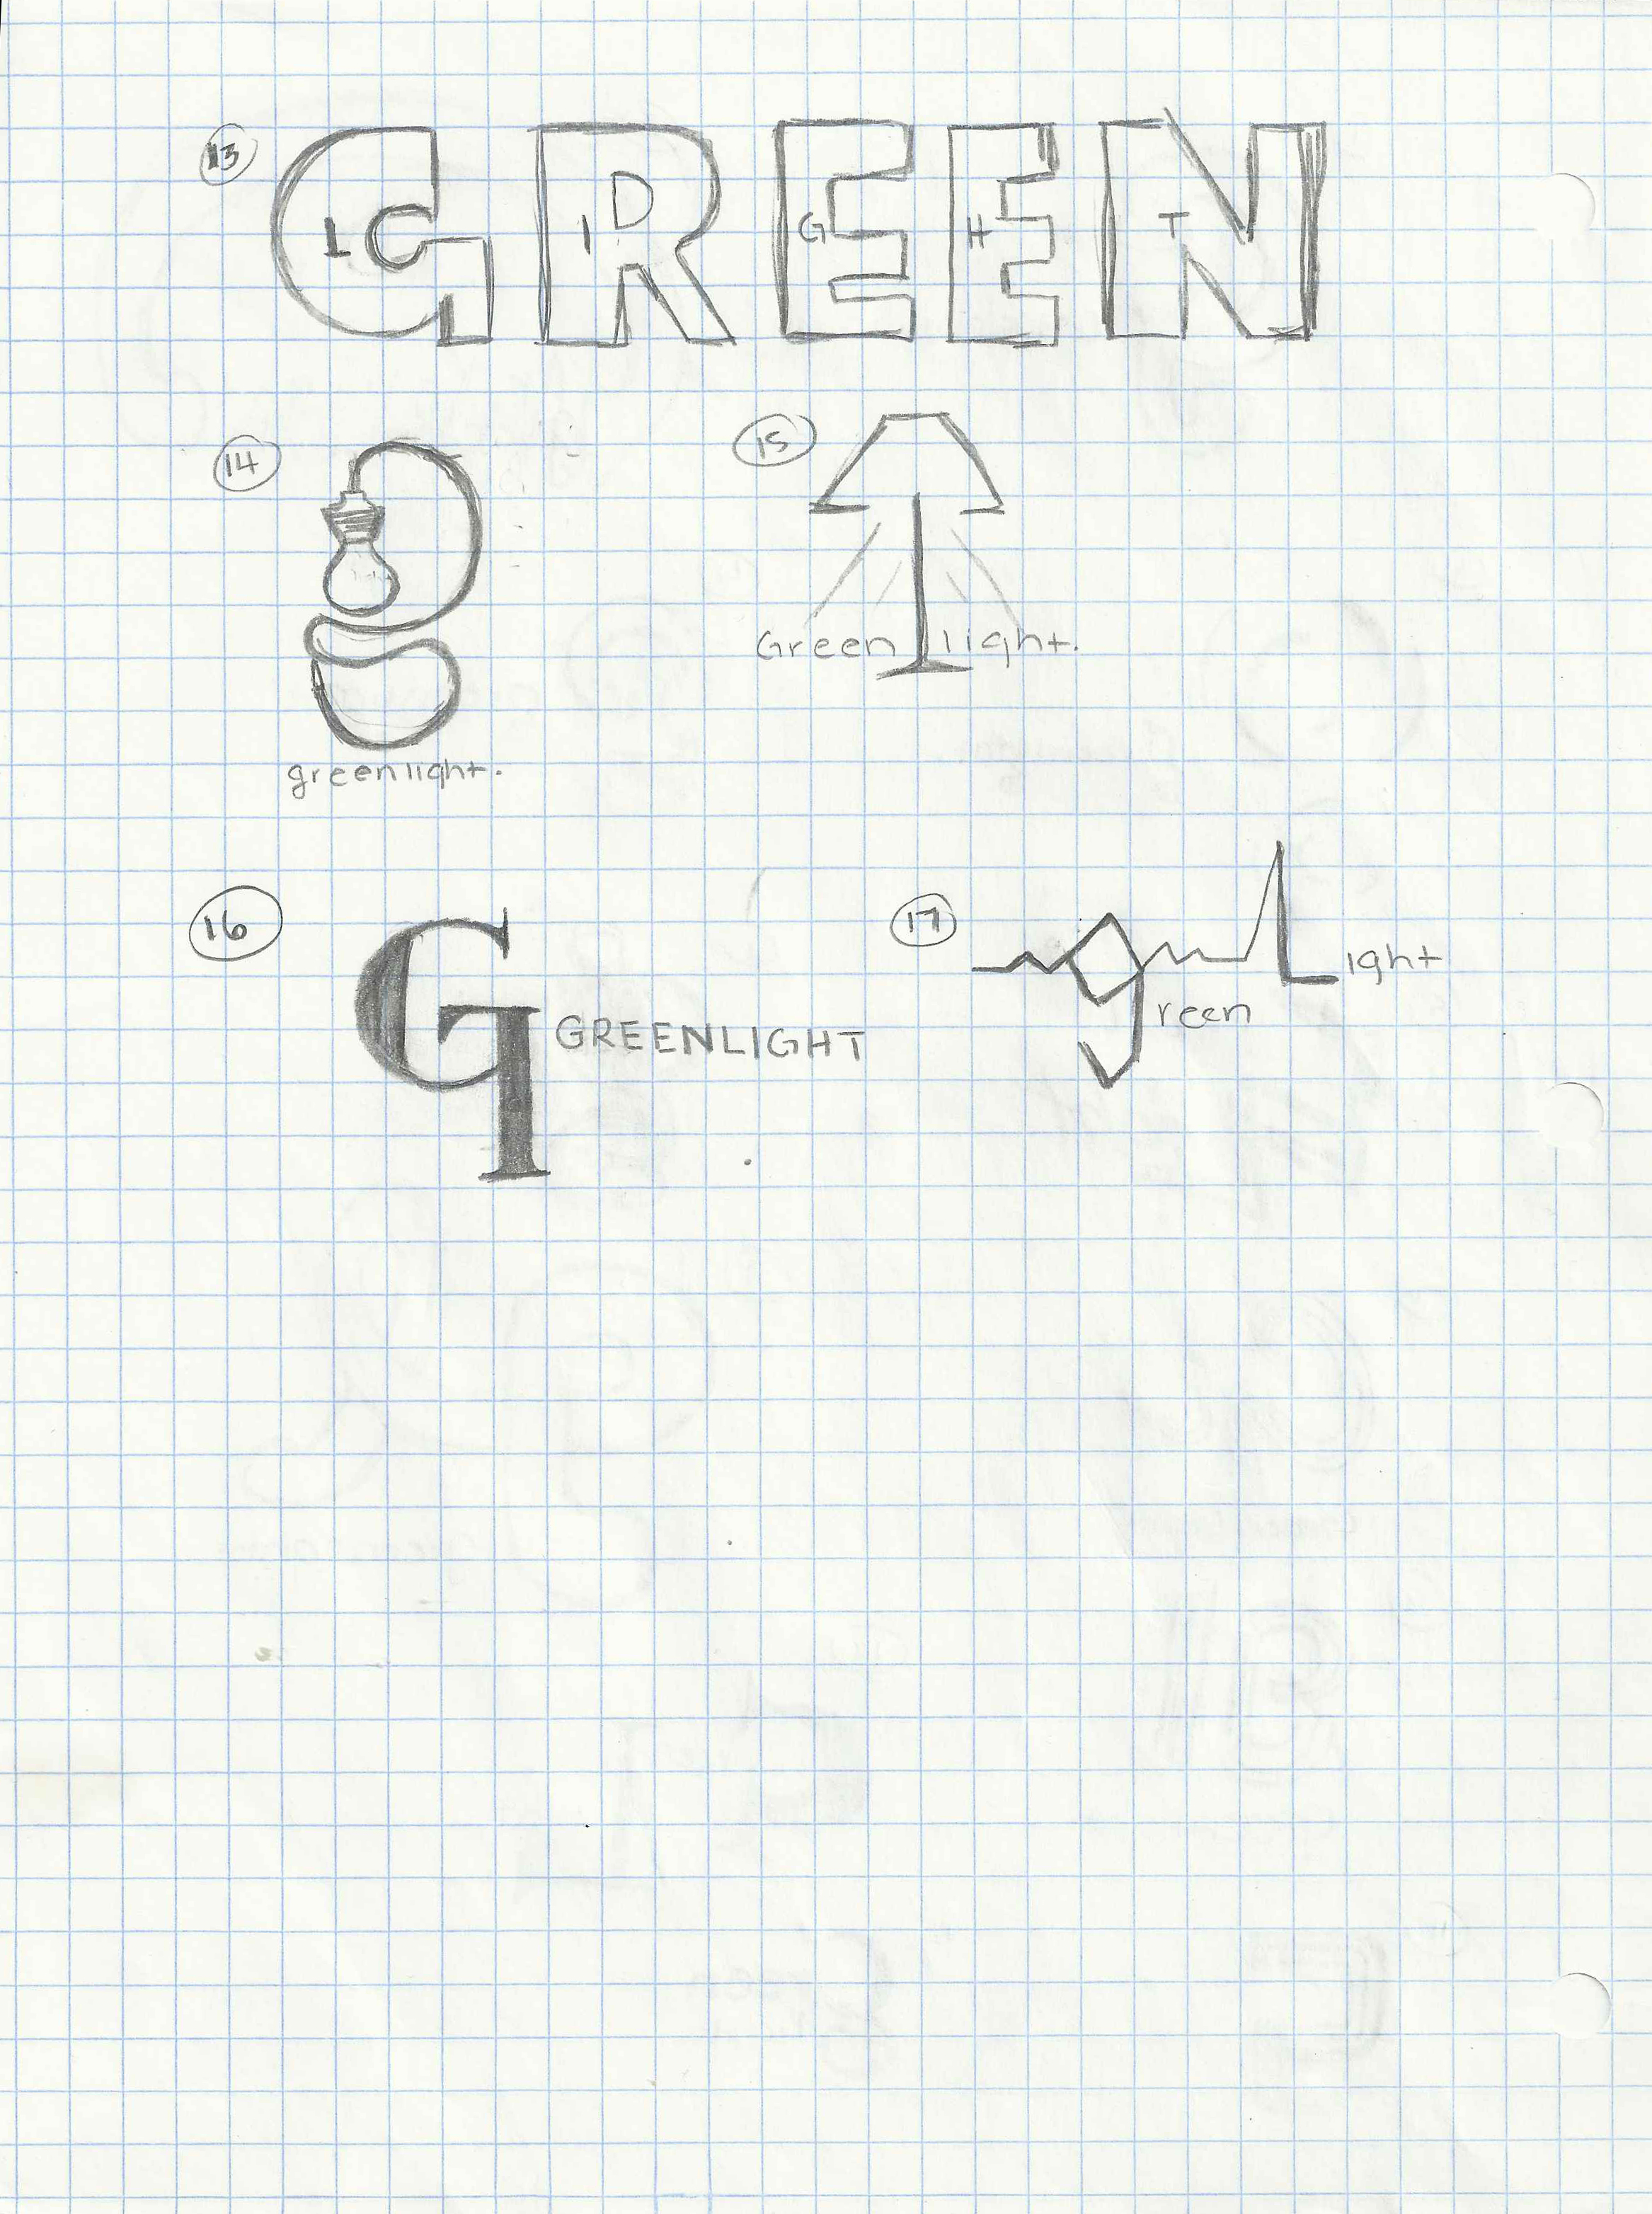 13
GREEN
L I G H T
14
greenlight.
15
Green light.
16
G
GREENLIGHT
17
g Light
reen